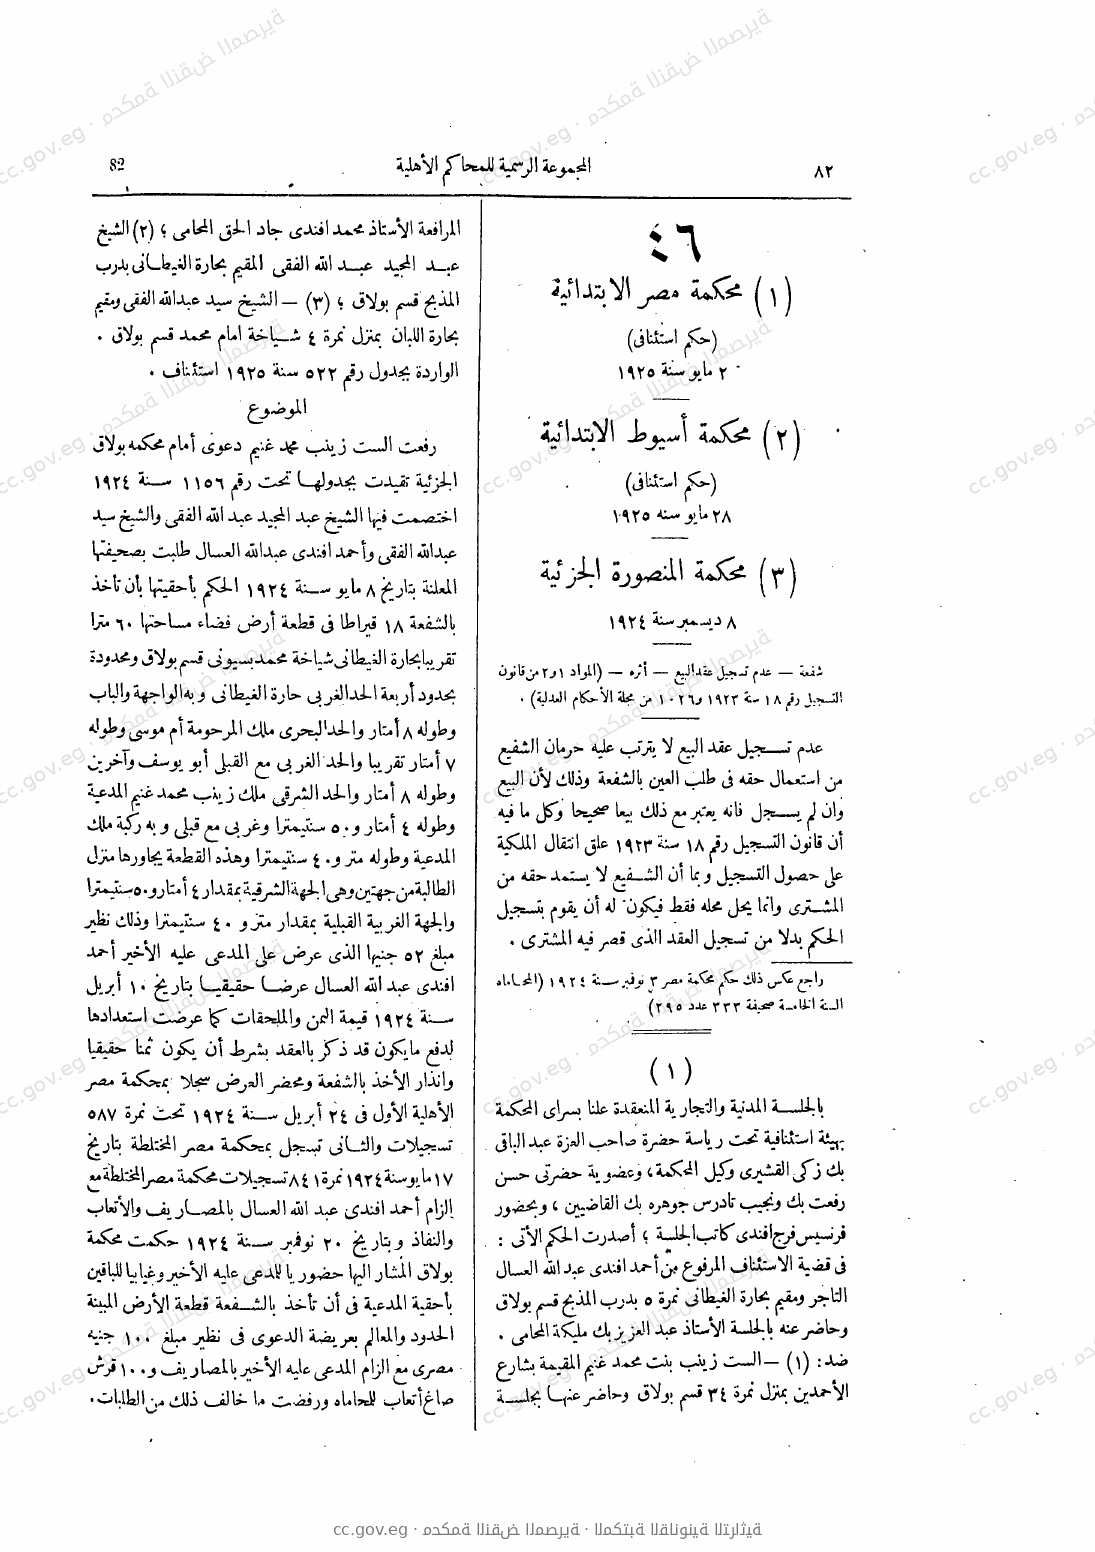 ٨٢
المجموعة الرسمية للمحاكم الأهلية
82
٤٦
(١) محكمة مصر الابتدائية
(حكم استئنافى)
٢ مايو سنة ١٩٢٥
(٢) محكمة أسيوط الابتدائية
(حكم استئنافى)
٢٨ مايو سنه ١٩٢٥
(٣) محكمة المنصورة الجزئية
٨ ديسمبر سنة ١٩٢٤
شفعة — عدم تسجيل عقد البيع — أثره — (المواد ١ و٢ من قانون
التسجيل رقم ١٨ سنة ١٩٢٣ و١٠٢٦ من مجلة الأحكام العدلية) .
عدم تسجيل عقد البيع لا يترتب عليه حرمان الشفيع
من استعمال حقه فى طلب العين بالشفعة وذلك لأن البيع
وان لم يسجل فانه يعتبر مع ذلك بيعا صحيحا وكل ما فيه
أن قانون التسجيل رقم ١٨ سنة ١٩٢٣ علق انتقال الملكية
على حصول التسجيل وبما أن الشفيع لا يستمد حقه من
المشترى وانما يحل محله فقط فيكون له أن يقوم بتسجيل
الحكم بدلا من تسجيل العقد الذى قصر فيه المشترى .
راجع عكس ذلك حكم محكمة مصر ٣ نوفبر سنة ١٩٢٤ (المحاماه
السنة الخامسة صحيفة ٣٣٣ عدد ٢٩٥)
(١)
بالجلسة المدنية والتجارية المنعقدة علنا بسراى المحكمة
بهيئة استئنافية تحت رياسة حضرة صاحب العزة عبد الباقى
بك زكى القشيرى وكيل المحكمة، وعضوية حضرتى حسن
رفعت بك ونجيب تادرس جوهره بك القاضيين ، وبحضور
فرنسيس فرج افندى كاتب الجلسة ؛ أصدرت الحكم الأتى :
فى قضية الاستئناف المرفوع من أحمد افندى عبد الله العسال
التاجر ومقيم بحارة الغيطانى نمرة ٥ بدرب المذبح قسم بولاق
وحاضر عنه بالجلسة الأستاذ عبد العزيز بك مليكة المحامى .
ضد: (١) — الست زينب بنت محمد غنيم المقيمة بشارع
الأحمدين بمنزل نمرة ٣٤ قسم بولاق وحاضر عنها بجلسة
المرافعة الأستاذ محمد افندى جاد الحق المحامى ؛ (٢) الشيخ
عبد المجيد عبد الله الفقى المقيم بحارة الغيطانى بدرب
المذبح قسم بولاق ؛ (٣) — الشيخ سيد عبدالله الفقى ومقيم
بحارة اللبان بمنزل نمرة ٤ شياخة امام محمد قسم بولاق .
الواردة بجدول رقم ٥٢٢ سنة ١٩٢٥ استئناف .
الموضوع
رفعت الست زينب محمد غنيم دعوى أمام محكمه بولاق
الجزئية تقيدت بجدولها تحت رقم ١١٥٦ سنة ١٩٢٤
اختصمت فيها الشيخ عبد المجيد عبد الله الفقى والشيخ سيد
عبدالله الفقى وأحمد افندى عبدالله العسال طلبت بصحيفتها
المعلنة بتاريخ ٨ مايو سنة ١٩٢٤ الحكم بأحقيتها بأن تأخذ
بالشفعة ١٨ قيراطا فى قطعة أرض فضاء مساحتها ٦٠ مترا
تقريبا بحارة الغيطانى شياخة محمد بسيونى قسم بولاق ومحدودة
بحدود أربعة الحد الغربى حارة الغيطانى وبه الواجهة والباب
وطوله ٨ أمتار والحد البحرى ملك المرحومة أم موسى وطوله
٧ أمتار تقريبا والحد الغربى مع القبلى أبو يوسف وآخرين
وطوله ٨ أمتار والحد الشرقى ملك زينب محمد غنيم المدعية
وطوله ٤ أمتار و٥٠ سنتيمترا وغربى مع قبلى وبه ركبة ملك
المدعية وطوله متر و٤٠ سنتيمترا وهذه القطعة يجاورها منزل
الطالبة من جهتين وهى الجهة الشرقية بمقدار ٤ أمتار و٥٠ سنتيمترا
والجهة الغربية القبلية بمقدار متر و ٤٠ سنتيمترا وذلك نظير
مبلغ ٥٢ جنيها الذى عرض على المدعى عليه الأخير أحمد
افندى عبد الله العسال عرضا حقيقيا بتاريخ ١٠ أبريل
سنة ١٩٢٤ قيمة الثمن والملحقات كما عرضت استعدادها
لدفع مايكون قد ذكر بالعقد بشرط أن يكون ثمنا حقيقيا
وانذار الأخذ بالشفعة ومحضر العرض سجلا بمحكمة مصر
الأهلية الأول فى ٢٤ أبريل سنة ١٩٢٤ تحت نمرة ٥٨٧
تسجيلات والثانى تسجل بمحكمة مصر المختلطة بتاريخ
١٧ مايو سنة ١٩٢٤ نمرة ٨٤١ تسجيلات محكمة مصر المختلطة مع
إلزام أحمد افندى عبد الله العسال بالمصاريف والأتعاب
والنفاذ وبتاريخ ٢٠ نوفمبر سنة ١٩٢٤ حكمت محكمة
بولاق المشار اليها حضوريا للمدعى عليه الأخير وغيابيا للباقين
بأحقية المدعية فى أن تأخذ بالشفعة قطعة الأرض المبينة
الحدود والمعالم بعريضة الدعوى فى نظير مبلغ ١٠٠ جنيه
مصرى مع الزام المدعى عليه الأخير بالمصاريف و١٠٠ قرش
صاغ أتعاب للمحاماه ورفضت ما خالف ذلك من الطلبات.
cc.gov.eg · محكمة النقض المصرية · المكتبة القانونية التراثية